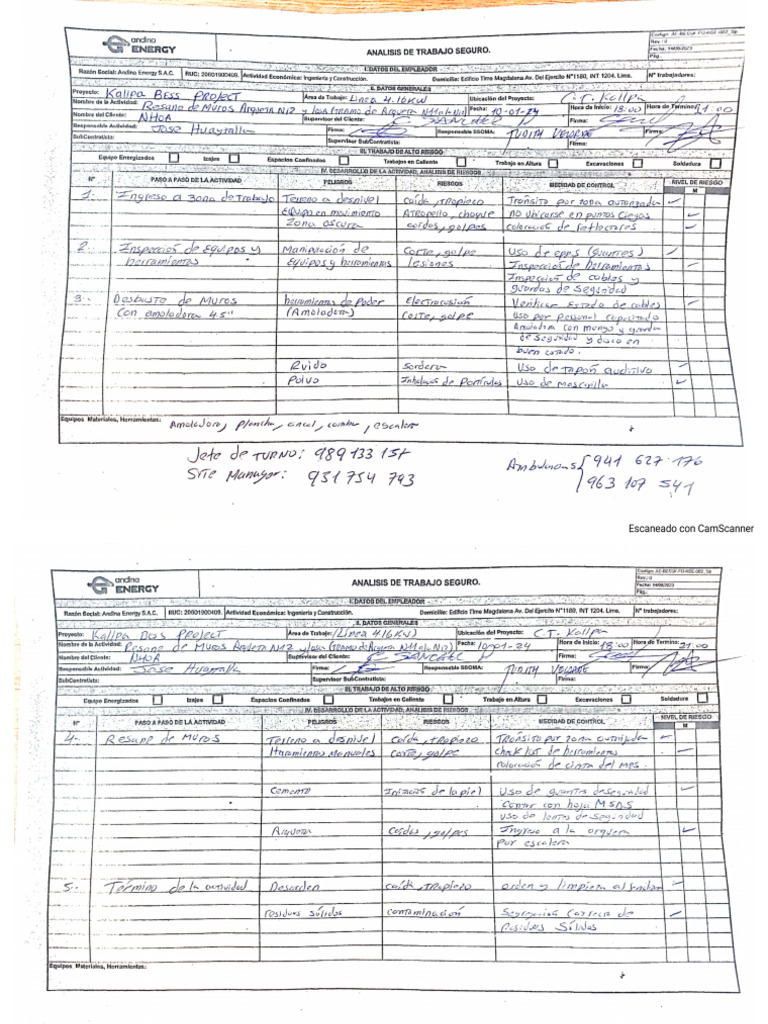 andina
ENERGY
ANALISIS DE TRABAJO SEGURO.
Rev.: 0
Fecha: 14/06/2023
Pág.:
I. DATOS DEL EMPLEADOR
Razón Social: Andina Energy S.A.C. RUC: 20601900409. Actividad Económica: Ingeniería y Construcción. Domicilio: Edificio Time Magdalena Av. Del Ejercito N°1180, INT 1204. Lima. N° trabajadores:
II. DATOS GENERALES
Proyecto: Kallpa Bess Project Área de Trabajo: Línea 4.16KW Ubicación del Proyecto: C.T. Kallpa
Nombre de la Actividad: Resane de Muros Arqueta N12 Fecha: 10-01-24 Hora de Inicio: 18:00 Hora de Termino: 21:00
Nombre del Cliente: NHOA Supervisor del Cliente: Firma: Firma:
Responsable Actividad: Jose Huaytalla Firma: Responsable SSOMA: Judith Firma:
SubContratista: Supervisor SubContratista:
III. TRABAJO DE ALTO RIESGO
Equipo Energizados Izajes Espacios Confinados Trabajos en Caliente Trabajo en Altura Excavaciones Soldadura
IV. DESARROLLO DE LA ACTIVIDAD, ANALISIS DE RIESGOS
N° PASO A PASO DE LA ACTIVIDAD PELIGROS RIESGOS MEDIDAD DE CONTROL NIVEL DE RIESGO
M
1. Ingreso a zona de trabajo Terreno a desnivel Caída, tropiezo Tránsito por zona autorizada
Equipo en movimiento Atropello, choque no ubicarse en puntos ciegos
Zona oscura caídos, golpes colocación de reflectores
2. Inspección de Equipos y Manipulación de Corte, golpe Uso de epps (guantes)
herramientas Equipos y herramientas lesiones Inspección de herramientas
Inspección de cables y
guardas de seguridad
3. Desbaste de Muros herramientas de Poder Electrocusión Verificar Estado de cables
Con amoladora 4.5" (Amoladora) Corte, golpe Uso por personal capacitado
Amoladora con mango y guarda
de seguridad y disco en
buen estado.
Ruido sordera Uso de tapón auditivo
Polvo Inhalacion de Partículas Uso de mascarilla
Equipos Materiales, Herramientas: Amoladora, plancha, cincel, comba, escalera
Jefe de TURNO: 989133157
Site Manager: 931 754 793
Ambulancias 941 627 176
963 107 541
Escaneado con CamScanner
andina
ENERGY
ANALISIS DE TRABAJO SEGURO.
Rev.: 0
Fecha: 14/06/2023
Pág.:
I. DATOS DEL EMPLEADOR
Razón Social: Andina Energy S.A.C. RUC: 20601900409. Actividad Económica: Ingeniería y Construcción. Domicilio: Edificio Time Magdalena Av. Del Ejercito N°1180, INT 1204. Lima. N° trabajadores:
II. DATOS GENERALES
Proyecto: Kallpa Bos Project Área de Trabajo: Línea 4.16KW Ubicación del Proyecto: C.T. Kallpa
Nombre de la Actividad: Resane de Muros Arqueta N12 Fecha: 10-01-24 Hora de Inicio: 18:00 Hora de Termino: 21:00
Nombre del Cliente: NHOA Supervisor del Cliente: Firma: Firma:
Responsable Actividad: Jose Huaytalla Firma: Responsable SSOMA: Judith
SubContratista: Supervisor SubContratista:
III. TRABAJO DE ALTO RIESGO
Equipo Energizados Izajes Espacios Confinados Trabajos en Caliente Trabajo en Altura Excavaciones Soldadura
IV. DESARROLLO DE LA ACTIVIDAD, ANALISIS DE RIESGOS
N° PASO A PASO DE LA ACTIVIDAD PELIGROS RIESGOS MEDIDAD DE CONTROL NIVEL DE RIESGO
M
4. Resane de Muros Terreno a desnivel Caída, tropiezo Tránsito por zona autorizada
Herramientas Manuales Corte, golpe check list de herramientas
colocación de cinta del mes.
Cemento de la piel Uso de guantes de seguridad
Contar con hoja MSDS
uso de lentes de seguridad
Arqueta Caídas, golpes Ingreso a la arqueta
por escalera
5. Término de la actividad Desorden caída, tropiezo orden y limpieza al
residuos sólidos contaminación Segregación Correcta de
Residuos Sólidos
Equipos Materiales, Herramientas: